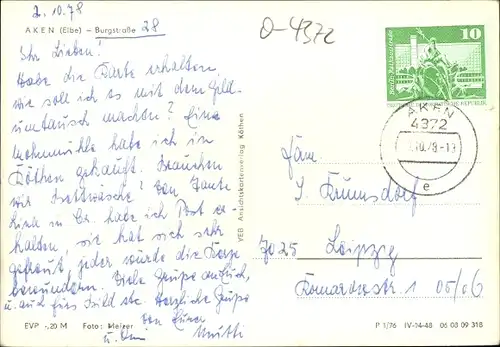 2.10.78
O-4372
AKEN (Elbe) – Burgstraße 28
Ihr Lieben!
Habe die Karte erhalten
wie soll ich es mit dem Geld-
umtausch machen? Eine
habe ich in
Köthen gekauft. Brauchen
wir Bettwäsche? Von Tante
in habe ich Post er-
halten, sie hat sich sehr
gefreut, jeder würde die Kerze
bewundern. Viele Grüße auch
u. auch Herzliche Grüße
von Eurer
u. Mutti
VEB Ansichtskartenverlag Köthen
10
DEUTSCHE DEMOKRATISCHE REPUBLIK
AKEN
4372
e
Fam.
J. Krumsdorf
7025 Leipzig
Komarowstr. 1 05/06
EVP -,20 M Foto: Melzer
P 1/76 IV-14-48 06 08 09 318